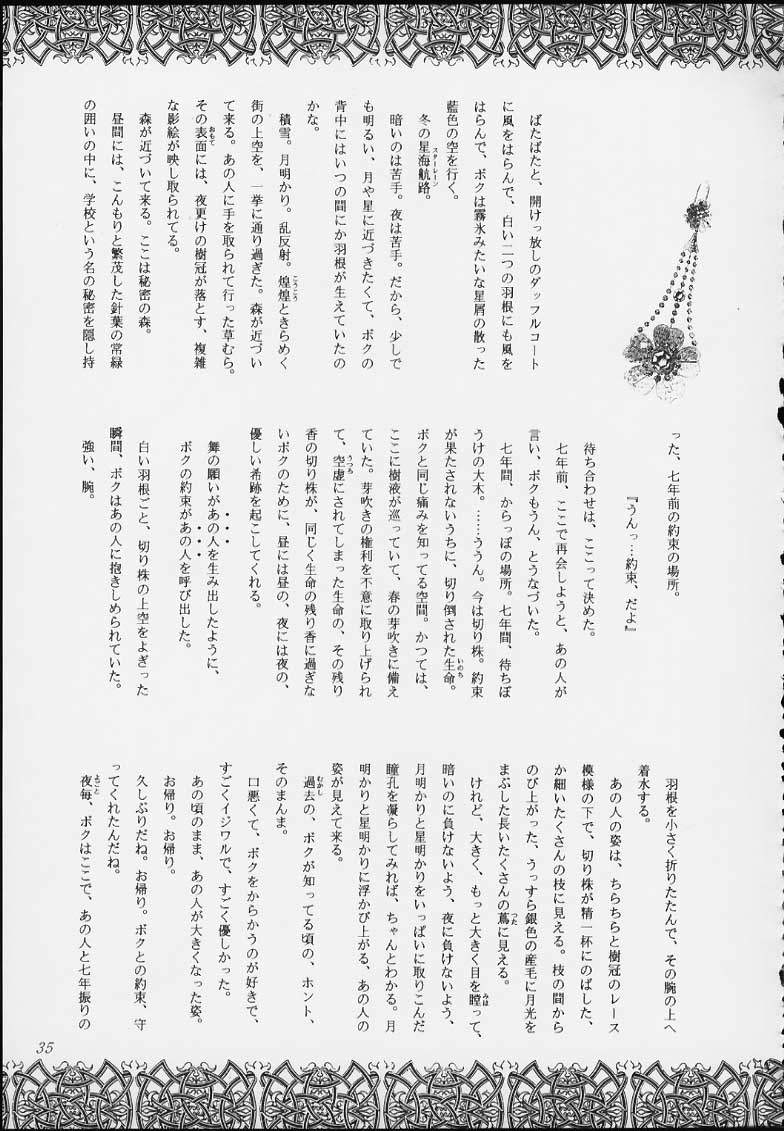 ばたばたと、開けっ放しのダッフルコート
に風をはらんで、白い二つの羽根にも風を
はらんで、ボクは霧氷みたいな星屑の散った
藍色の空を行く。
冬の星海航路。
スターレーン
暗いのは苦手。夜は苦手。だから、少しで
も明るい、月や星に近づきたくて、ボクの
背中にはいつの間にか羽根が生えていたの
かな。
積雪。月明かり。乱反射。煌煌ときらめく
こうこう
街の上空を、一挙に通り過ぎた。森が近づい
て来る。あの人に手を取られて行った草むら。
その表面には、夜更けの樹冠が落とす、複雑
おもて
な影絵が映し取られてる。
森が近づいて来る。ここは秘密の森。
昼間には、こんもりと繁茂した針葉の常緑
の囲いの中に、学校という名の秘密を隠し持
った、七年前の約束の場所。
『うんっ…約束、だよ』
待ち合わせは、ここって決めた。
七年前、ここで再会しようと、あの人が
言い、ボクもうん、とうなづいた。
七年間、からっぽの場所。七年間、待ちぼ
うけの大木。……ううん。今は切り株。約束
が果たされないうちに、切り倒された生命。
いのち
ボクと同じ痛みを知ってる空間。かつては、
ここに樹液が巡っていて、春の芽吹きに備え
ていた。芽吹きの権利を不意に取り上げられ
て、空虚にされてしまった生命の、その残り
うつろ
香の切り株が、同じく生命の残り香に過ぎな
いボクのために、昼には昼の、夜には夜の、
優しい希跡を起こしてくれる。
舞の願いがあの人を生み出したように、
ボクの約束があの人を呼び出した。
白い羽根ごと、切り株の上空をよぎった
瞬間、ボクはあの人に抱きしめられていた。
強い、腕。
羽根を小さく折りたたんで、その腕の上へ
着水する。
あの人の姿は、ちらちらと樹冠のレース
模様の下で、切り株が精一杯にのばした、
か細いたくさんの枝に見える。枝の間から
のび上がった、うっすら銀色の産毛に月光を
まぶした長いたくさんの蔦に見える。
つた
けれど、大きく、もっと大きく目を瞠って、
みは
暗いのに負けないよう、夜に負けないよう、
月明かりと星明かりをいっぱいに取りこんだ
瞳孔を凝らしてみれば、ちゃんとわかる。月
明かりと星明かりに浮かび上がる、あの人の
姿が見えて来る。
過去の、ボクが知ってる頃の、ホント、
むかし
そのまんま。
口悪くて、ボクをからかうのが好きで、
すごくイジワルで、すごく優しかった。
あの頃のまま、あの人が大きくなった姿。
お帰り。お帰り。
久しぶりだね。お帰り。ボクとの約束、守
ってくれたんだね。
夜毎、ボクはここで、あの人と七年振りの
よごと
35